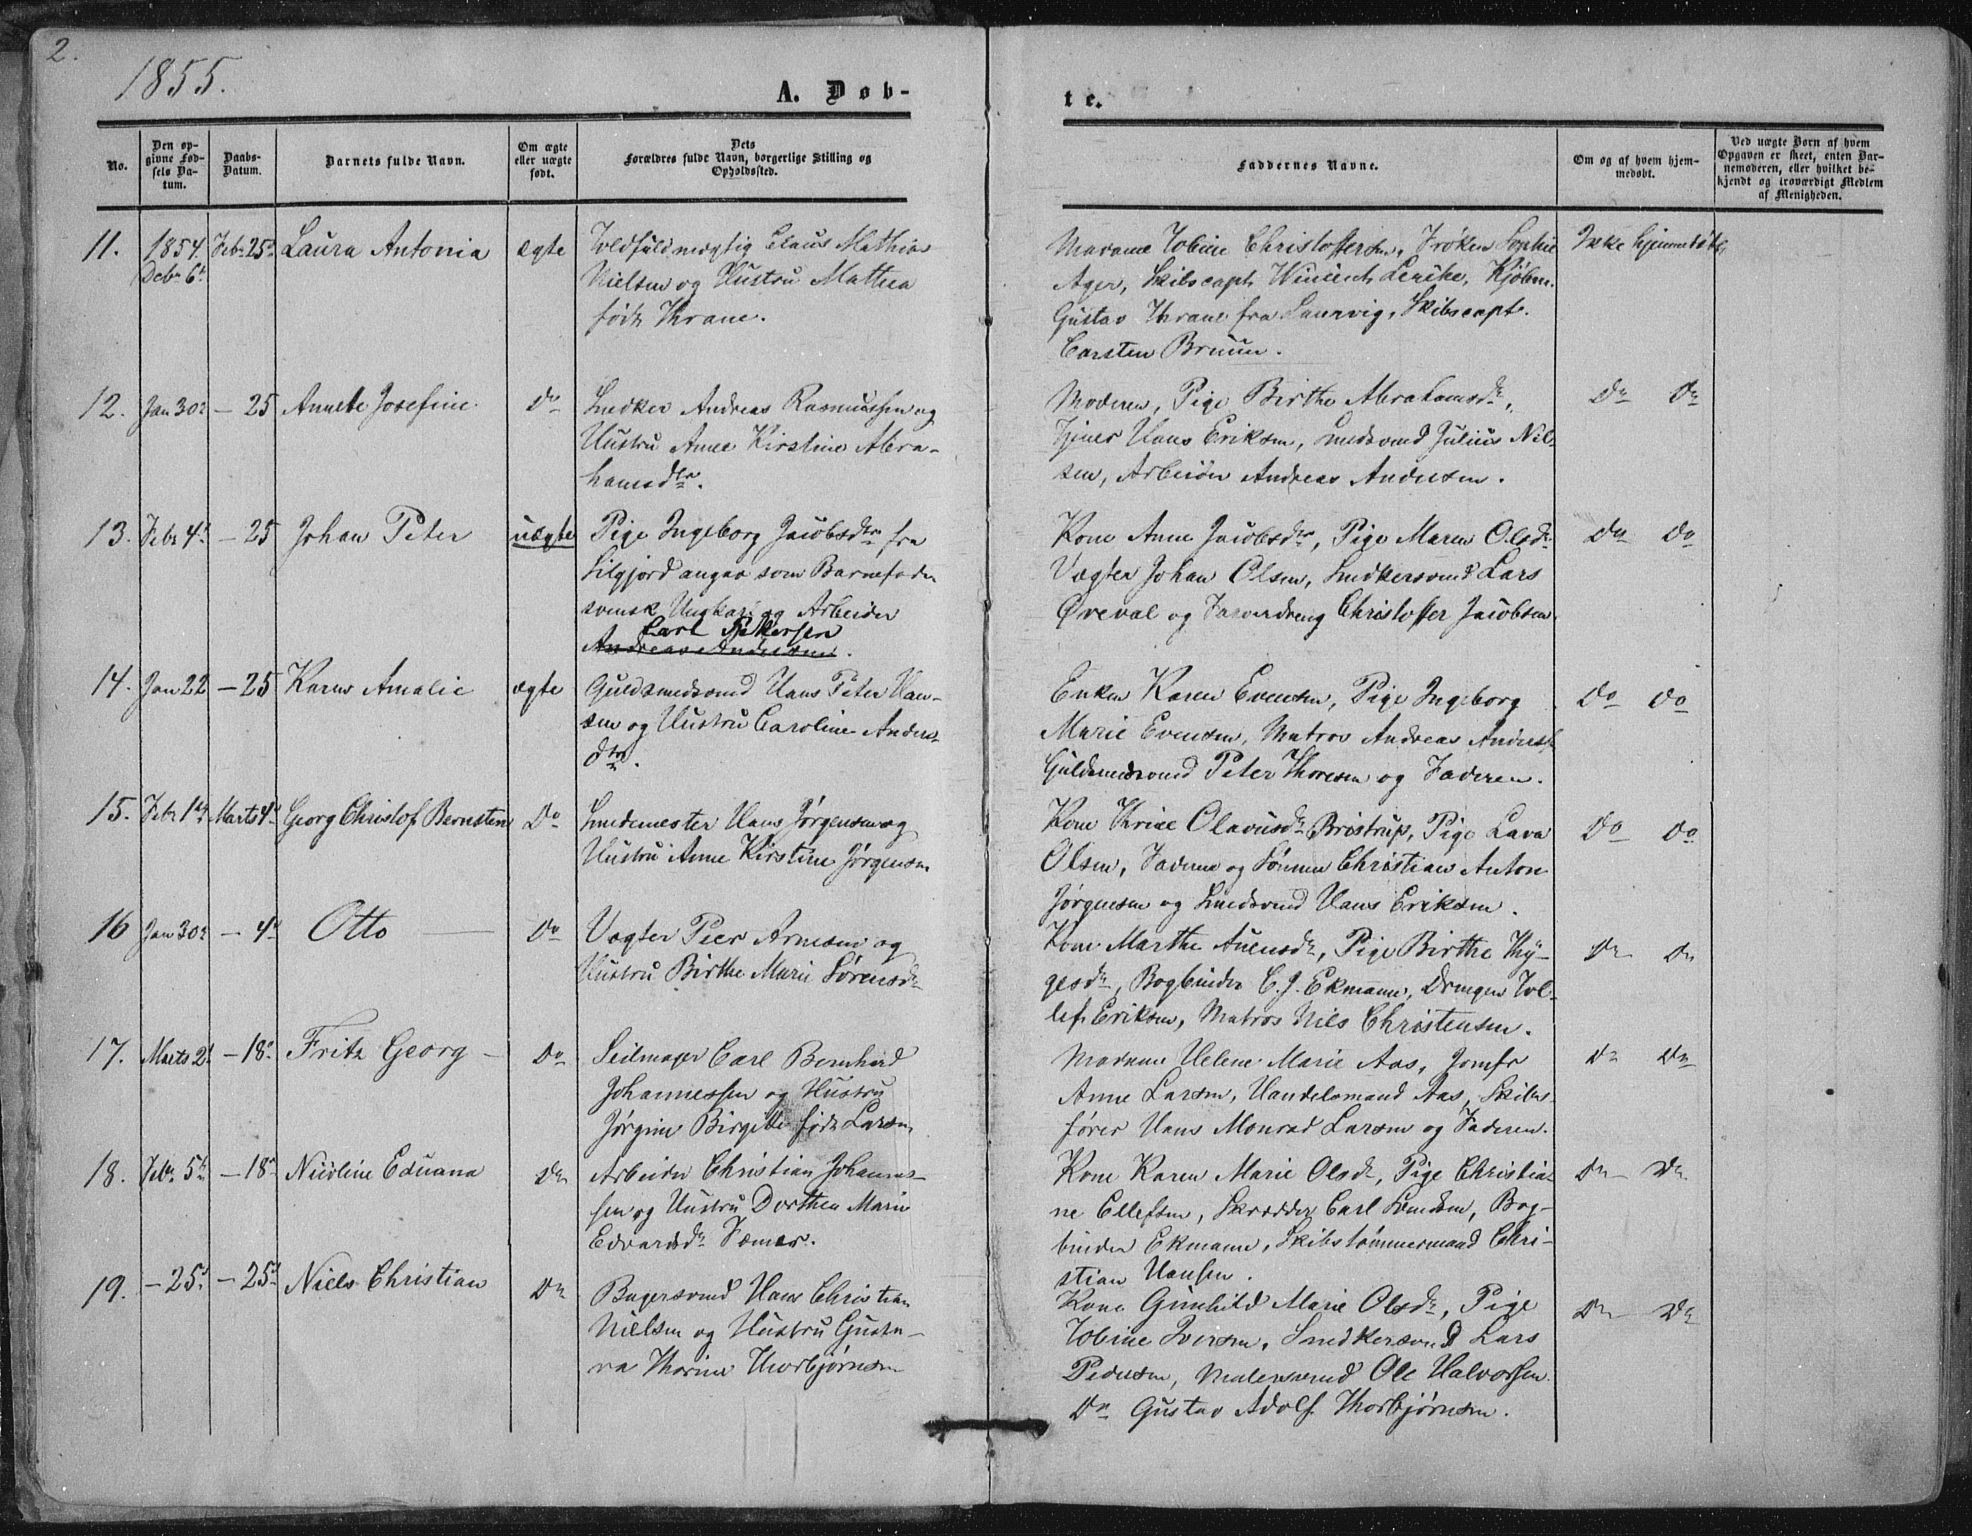 2.
1855.
A. Døb-
te.
No.
Den op-
givne Fød-
sels Da-
tum.
Daabs-
Datum.
Barnets fulde Navn.
Om ægte
eller uægte
født.
Dets
Forældres fulde Navn, borgerlige Stilling og
Opholdssted.
Faddernes Navne.
Om og af hvem hjem-
medøbt.
Ved uægte Børn af hvem
Opgaven er skeet, enten Bar-
nemoderen, eller hvilket be-
kjendt og troværdigt Medlem
af Menigheden.
11. 1854 Febr 25d Laura Antonia ægte Toldfuldmægtig Claus Mathias
Decbr 6te
Nielsen og Hustru Mathea
født Thrane.
Madame Tobine Christoffersen, Frøken Sophie
Ager, Skibscapt Wincent Lerche, Kjøbm.
Gustav Thrane fra Laurvig, Skibscapt.
Carsten Bruun.
Ikke hjemmedøbt
12. Jan 30te - 25 Annete Josefine. Do Snedker Andreas Rasmussen og
Hustru Anne Kirstine Abra-
hamsdtr.
Moderen, Pige Birthe Abrahamsdr,
Tjener Hans Eriksen, Smedsvend Julius Nil-
sen, Arbeider Andreas Andersen.
Do Do
13. Febr 4de - 25 Johan Peter uægte Pige Ingeborg Jacobsdtr fra
Siljord angav som Barnefader
svensk Ungkarl og Arbeider
Carl Petersen
Andreas Andersen.
Kone Anne Jacobsdtr, Pige Maren Olsdr
Vægter Johan Olsen, Snedkersvend Lars
Øreval og Farverdreng Christoffer Jacobsen.
Do Do
14. Jan 22 - 25 Karen Amalie ægte Guldsmedsvend Hans Peter Han-
sen og Hustru Caroline Anders-
dtr.
Enken Karen Evensen, Pige Ingeborg
Marie Evensen, Matros Andreas Anders.
Guldsmedsvend Peter Thoresen og Faderen.
Do Do
15. Febr 1ste Marts 4de Georg Christof Bernsten Do Smedemester Hans Jørgensen og
Hustru Anne Kirstine Jørgensen
Kone Thrine Olavusdr Bristrup, Pige Lava
Olsen, Faderen og Sønnen Christian Anton
Jørgensen og Smedsvend Hans Eriksen.
Do Do
16 Jan 30te - 4de Otto Do Vægter Peer Arnesen og
Hustru Birthe Marie Sørensdr
Kone Marthe Auensdr, Pige Birthe Thy-
gesdr, Bogbinder C. J. Ekmann, Drengen Tol-
lef Eriksen, Matros Nils Christensen.
Do Do
17. Marts 2d - 18de Fritz Georg - Do Seilmager Carl Bernhard
Johannessen og Hustru
Jørgine Birgitte født Larsen
Madame Helene Marie Aas, Jomfr
Anne Larsen, Handelsmand Aas, Skibs-
fører Hans Monrad Larsen og Faderen.
Do Do
18. Febr 5te - 18de Nicoline Eduana Do Arbeider Christian Johannes-
sen og Hustru Dorthea Marie
Edvardsdr
Kone Karen Marie Olsdr, Pige Christia-
ne Ellefsen, Skrædder Carl Svendsen, Bog-
binder Ekmann, Skibstømmermand Chri-
stian Hansen.
Do Do
19. - 25de - 25de Niels Christian Do Bagersvend Hans Christian
Nielsen og Hustru Gusta-
va Thorine Thorbjørnsen
Kone Gunhild Marie Olsdr, Pige
Tobine Iversen, Snedkersvend Lars
Pedersen, Malersvend Ole Halvorsen
Do Gustav Adolf Thorbjørnsen.
Do Do